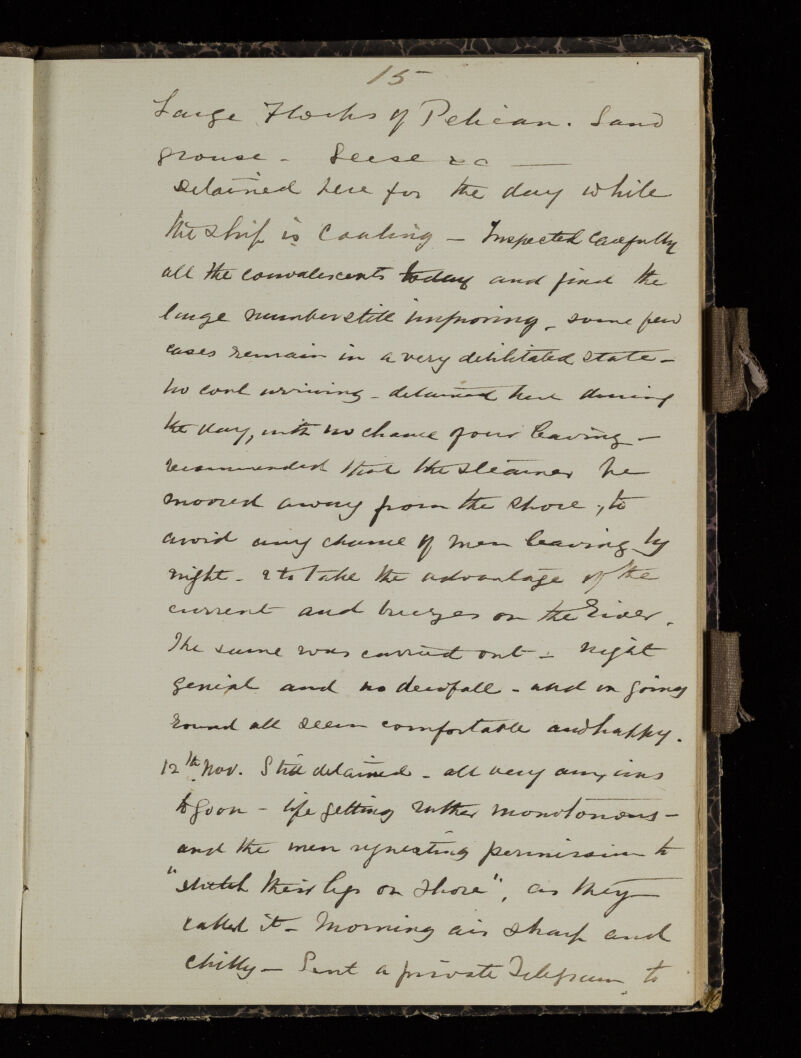 15
Large Flocks of Pelican. Sand
grouse - Geese &c —
Detained here for the day while
the Ship is Coaling - Inspected Carefully
all the convalescents today and find the
large number still improving - some few
cases remain in a very debilitated state -
no coal arriving - detained here during
the day, with no chance of our leaving -
recommended that the steamer be
moored away from the shore, to
avoid any chance of men leaving by
night - & to take the advantage of the
current and breezes on the River.
The same was carried out - night
genial and no dewfall - and on going
round all seem comfortable and happy.
12th Nov. Still detained - all very anxious
to go on - life getting rather monotonous -
and the men requesting permission to
"stretch their legs on shore", as they
called it - Morning air sharp and
chilly - Sent a private Telegram to